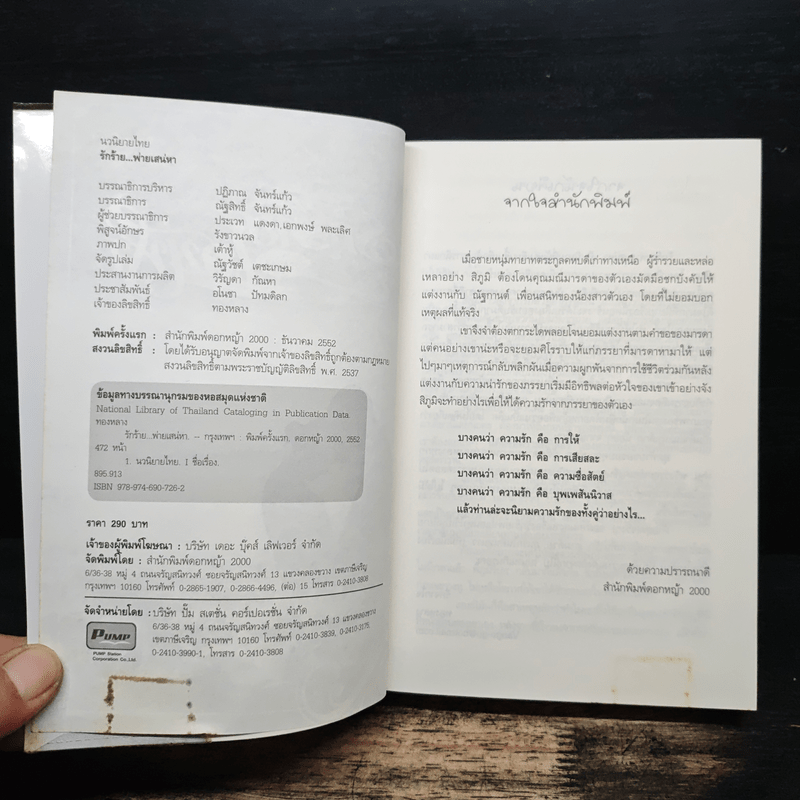 นวนิยายไทย
รักร้าย...พ่ายเสน่หา
บรรณาธิการบริหาร ปฏิภาณ จันทร์แก้ว
บรรณาธิการ ณัฐสิทธิ์ จันทร์แก้ว
ผู้ช่วยบรรณาธิการ ประเวท แดงดา,เอกพงษ์ พละเลิศ
พิสูจน์อักษร รังขาวนวล
ภาพปก เต้าหู้
จัดรูปเล่ม ณัฐวัชต์ เตชะเกษม
ประสานงานการผลิต วิรัญดา กัณหา
ประชาสัมพันธ์ อโนชา ปัทมดิลก
เจ้าของลิขสิทธิ์ ทองหลาง
พิมพ์ครั้งแรก : สำนักพิมพ์ดอกหญ้า 2000 : ธันวาคม 2552
สงวนลิขสิทธิ์ : โดยได้รับอนุญาตจัดพิมพ์จากเจ้าของลิขสิทธิ์ถูกต้องตามกฎหมาย
สงวนลิขสิทธิ์ตามพระราชบัญญัติลิขสิทธิ์ พ.ศ. 2537
ข้อมูลทางบรรณานุกรมของหอสมุดแห่งชาติ
National Library of Thailand Cataloging in Publication Data
ทองหลาง
รักร้าย...พ่ายเสน่หา. -- กรุงเทพฯ : พิมพ์ครั้งแรก. ดอกหญ้า 2000, 2552
472 หน้า
1. นวนิยายไทย. I ชื่อเรื่อง.
895.913
ISBN 978-974-690-726-2
ราคา 290 บาท
เจ้าของผู้พิมพ์โฆษณา : บริษัท เดอะ บุ๊คส์ เลิฟเวอร์ จำกัด
จัดพิมพ์โดย : สำนักพิมพ์ดอกหญ้า 2000
6/36-38 หมู่ 4 ถนนจรัญสนิทวงศ์ ซอยจรัญสนิทวงศ์ 13 แขวงคลองขวาง เขตภาษีเจริญ
กรุงเทพฯ 10160 โทรศัพท์ 0-2865-1907, 0-2866-4496, (ต่อ) 15 โทรสาร 0-2410-3808
จัดจำหน่ายโดย : บริษัท ปั๊ม สเตชั่น คอร์เปอเรชั่น จำกัด
6/36-38 หมู่ 4 ถนนจรัญสนิทวงศ์ ซอยจรัญสนิทวงศ์ 13 แขวงคลองขวาง
เขตภาษีเจริญ กรุงเทพฯ 10160 โทรศัพท์ 0-2410-3839, 0-2410-3175,
0-2410-3990-1, โทรสาร 0-2410-3808
PUMP
PUMP Station
Corporation Co.,Ltd.
จากใจสำนักพิมพ์
เมื่อชายหนุ่มทายาทตระกูลคหบดีเก่าทางเหนือ ผู้ร่ำรวยและหล่อ
เหลาอย่าง สิภูมิ ต้องโดนคุณมณีมารดาของตัวเองมัดมือชกบังคับให้
แต่งงานกับ ณัฐกานต์ เพื่อนสนิทของน้องสาวตัวเอง โดยที่ไม่ยอมบอก
เหตุผลที่แท้จริง
เขาจึงจำต้องตกกระไดพลอยโจนยอมแต่งงานตามคำขอของมารดา
แต่คนอย่างเขาน่ะหรือจะยอมศิโรราบให้แก่ภรรยาที่มารดาหามาให้ แต่
ไปๆมาๆเหตุการณ์กลับพลิกผันเมื่อความผูกพันจากการใช้ชีวิตร่วมกันหลัง
แต่งงานกับความน่ารักของภรรยาเริ่มมีอิทธิพลต่อหัวใจของเขาเข้าอย่างจัง
สิภูมิจะทำอย่างไรเพื่อให้ได้ความรักจากภรรยาของตัวเอง
บางคนว่า ความรัก คือ การให้
บางคนว่า ความรัก คือ การเสียสละ
บางคนว่า ความรัก คือ ความซื่อสัตย์
บางคนว่า ความรัก คือ บุพเพสันนิวาส
แล้วท่านล่ะจะนิยามความรักของทั้งคู่ว่าอย่างไร...
ด้วยความปรารถนาดี
สำนักพิมพ์ดอกหญ้า 2000